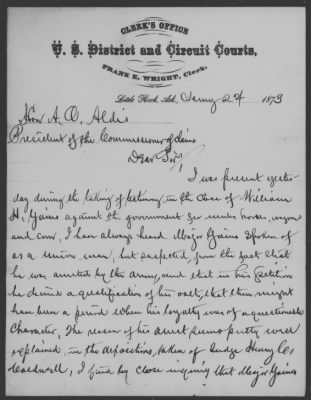 CLERK'S OFFICE
U. S. District and Circuit Courts,
FRANK E. WRIGHT, Clerk.
Little Rock, Ark., Jany 24 1873
Hon A. O. Aldis
President of the Commissioner of Claims
Dear Sir,
I was present yester-
day during the taking of testimony in the case of William
H. Gains against the government for mules horses, wagon
and cow, I have always heard Major Gains spoken of
as a Union man, but suspected, from the fact that
he was arrested by the army, and that in his petition
he desired a qualification of his oath, that there might
have been a period when his loyalty was of a questionable
character, The reason of his arrest seems pretty well
explained, in the depositions, taken of Judge Henry C.
Caldwell, I find by close inquiry that Major Gains